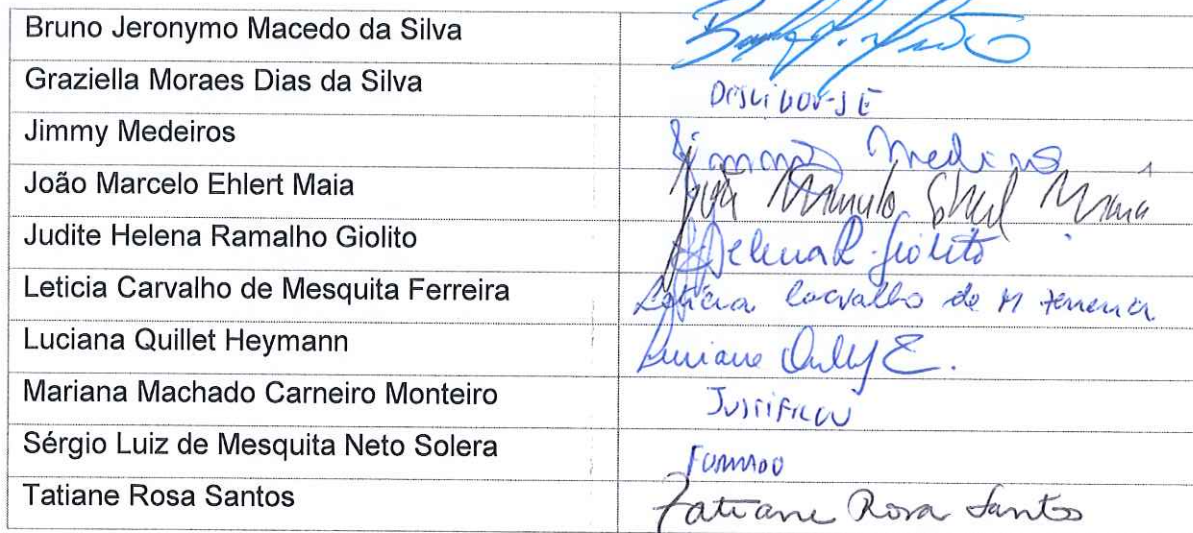 Bruno Jeronymo Macedo da Silva
Graziella Moraes Dias da Silva DESLIGOU-SE
Jimmy Medeiros Jimmy Medeiros
João Marcelo Ehlert Maia João Marcelo Ehlert Maia
Judite Helena Ramalho Giolito JHelena R. Giolito
Leticia Carvalho de Mesquita Ferreira Leticia Carvalho de M Ferreira
Luciana Quillet Heymann Luciana
Mariana Machado Carneiro Monteiro JUSTIFICOU
Sérgio Luiz de Mesquita Neto Solera FORMADO
Tatiane Rosa Santos Tatiane Rosa Santos